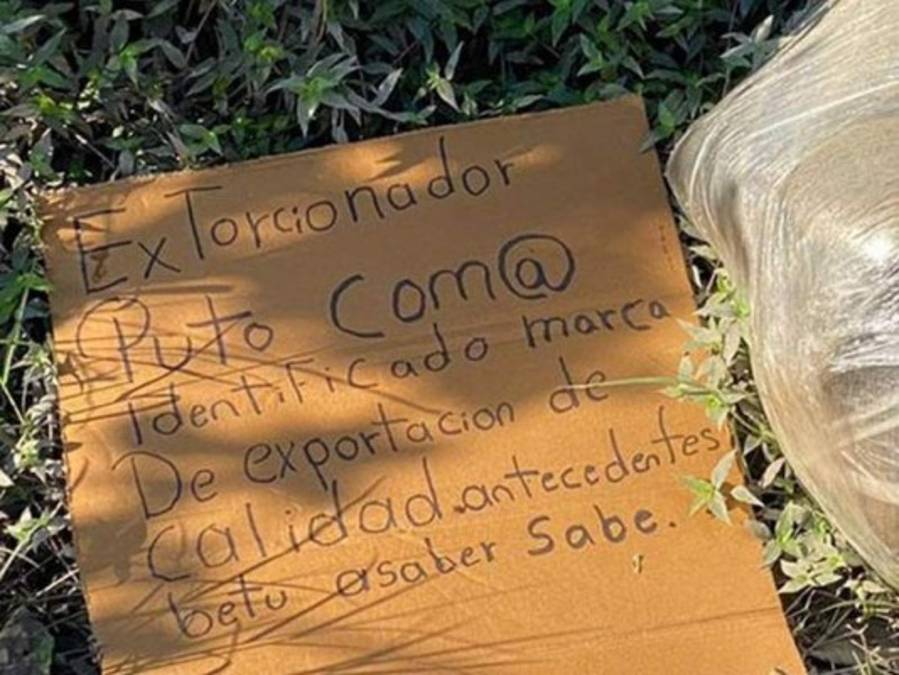 ExTorcionador
Puto Com@
Identificado marca
De exportacion de
Calidad.antecedentes
betu asaber Sabe.